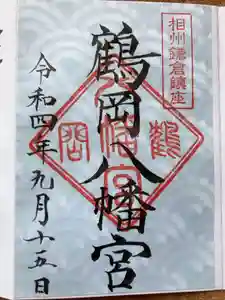 相州鎌倉鎮座
鶴岡八幡宮
令和四年九月十五日